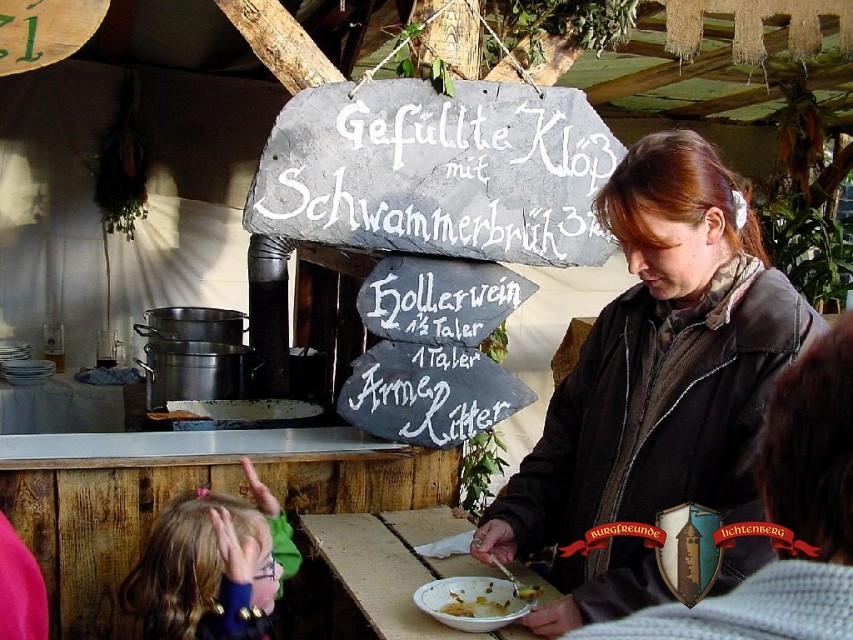 zi
Gefüllte Klöß
mit
Schwammerbrüh
Hollerwein
1½ Taler
1 Taler
Arme
Ritter
BURGFREUNDE LICHTENBERG